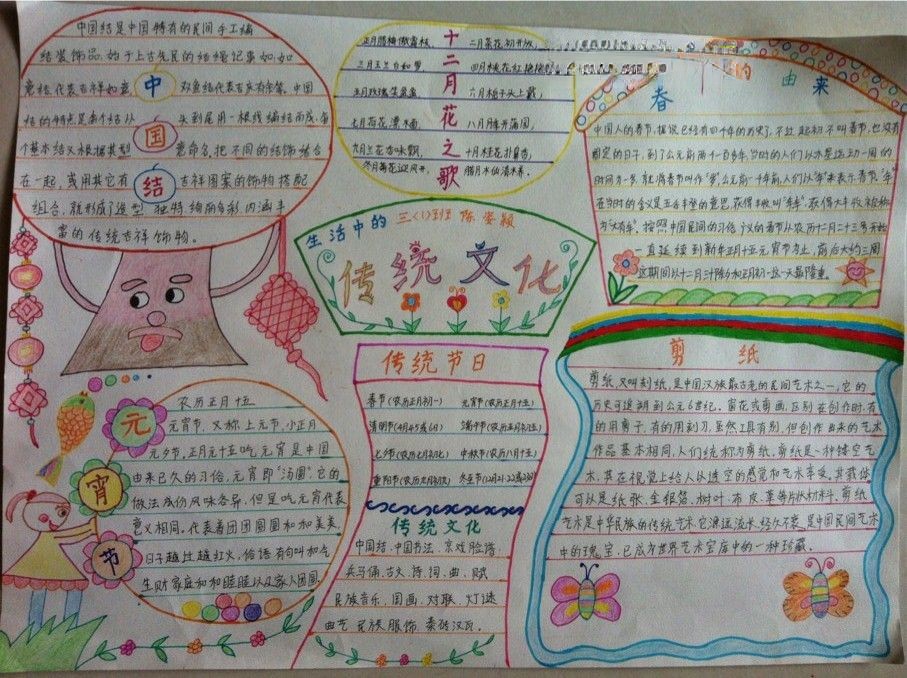 中国结是中国特有的民间手工编
结装饰品,始于上古先民的结绳记事如,如
意结代表吉祥如意,双鱼结代表吉庆有余等。中国
结的特点是每个结从头到尾用一根线编结而成,每
个基本结又根据其型意命名,把不同的结饰结合
在一起,或用其它有吉祥图案的饰物搭配
组合,就形成了造型独特绚丽多彩,内涵丰
富的传统吉祥饰物。
中
国
结
十二月花之歌
正月腊梅傲雪枝,
二月茶花初开放,
三月玉兰白如雪
七月荷花漂水面
八月月季开满园,
十月桂花扑鼻香,
腊月水仙清水养。
春 的 由 来
中国人的春节,据说已经有四千年的历史了,不过起初不叫春节,也没有
固定的日子,到了公元前两千一百多年,当时的人们以木星运动一周的
按照中国民间的习俗,广义的春节从农历十二月二十三号开始
一直延续到新年正月十五元宵节为止,前后大约三周
这期间以十二月三十除夕和正月初一这一天最隆重。
生活中的
三、(1)班 陈姿颖
传统文化
传统节日
春节(农历正月初一)
元宵节(农历正月十五)
清明节(4月4、5或6日)
端午节(农历五月初五)
七夕节(农历七月初七)
中秋节(农历八月十五)
重阳节(农历九月初九)
传统文化
中国结、中国书法、京戏脸谱、
兵马俑、古文、诗、词、曲、赋
民族音乐、国画、对联、灯谜
曲艺、民族服饰、秦砖汉瓦。
剪 纸
剪纸,又叫刻纸,是中国汉族最古老的民间艺术之一,它的
历史可追朔到公元6世纪。窗花或剪画,区别在创作时,有
的用剪子,有的用刻刀,虽然工具有别,但创作出来的艺术
作品基本相同,人们统称为剪纸,剪纸是一种镂空艺
术,其在视觉上给人以透空的感觉和艺术享受。其载体
可以是纸张、金银箔、树叶、布、皮、革等片状材料。剪纸
艺术是中华民族的传统艺术,它源远流长,经久不衰,是中国民间艺术
中的瑰宝,已成为世界艺术宝库中的一种珍藏。
元
宵
节
农历正月十五
元宵节,又称上元节,小正月
元夕节,正月十五吃元宵是中国
由来已久的习俗,元宵即"汤圆",它的
做法成份风味各异,但是吃元宵代表
意义相同。代表着团团圆圆和和美美,
日子越过越红火,俗语有句叫和气
生财家庭和和睦睦以及家人团圆